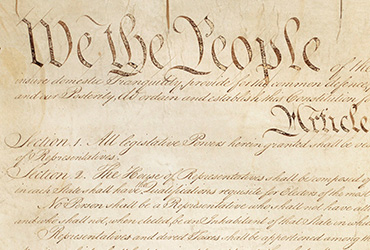 We the People of the
insure domestic Tranquility, provide for the common defence,
and our Posterity, do ordain and establish this Constitution for
Article
Section 1. All legislative Powers herein granted shall be vested
of Representatives.
Section 2. The House of Representatives shall be composed of
in each State shall have the Qualifications requisite for Electors of the most
No Person shall be a Representative who shall not have attained
and who shall not, when elected, be an Inhabitant of that State in which
Representatives and direct Taxes shall be apportioned among the